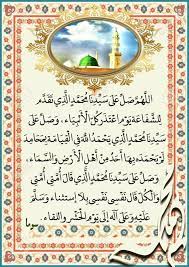 اللَّهُمَّ صَلِّ عَلَى سَيِّدِنَا مُحَمَّدٍ الَّذِي تَقَدَّمَ
لِلشَّفَاعَةِ يَوْمَ اعْتَذَرَ كُلُّ الْأَنْبِيَاءِ، وَصَلِّ عَلَى
سَيِّدِنَا مُحَمَّدٍ الَّذِي يَحْمَدُ اللهَ فِي الْقِيَامَةِ بِمَحَامِدَ
لَمْ يَحْمَدْهُ بِهَا أَحَدٌ مِنْ أَهْلِ الْأَرْضِ وَالسَّمَاءِ،
وَصَلِّ عَلَى سَيِّدِنَا مُحَمَّدٍ الَّذِي قَالَ أُمَّتِي أُمَّتِي
وَالْكُلُّ قَالَ نَفْسِي نَفْسِي بِلَا اسْتِثْنَاءٍ، وَسَلِّمْ
عَلَيْهِ وَعَلَى آلِهِ إِلَى يَوْمِ الْحَشْرِ وَاللِّقَاءِ.